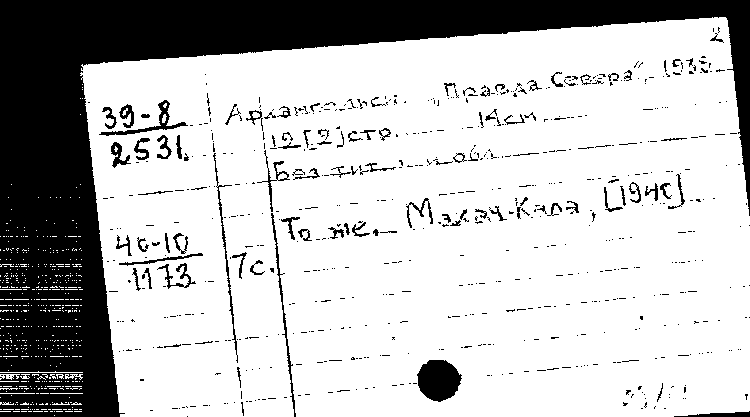 2
39-8
2531.
Архангельск. „Правда Севера", 1939
12 [2] стр. 14 см
Без тит. л. и обл.
40-10
1173
То же. Махач-Кала, [1940]
7 с.